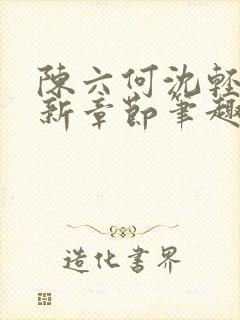 陳六何沈輕
新章節筆趣
造化書界